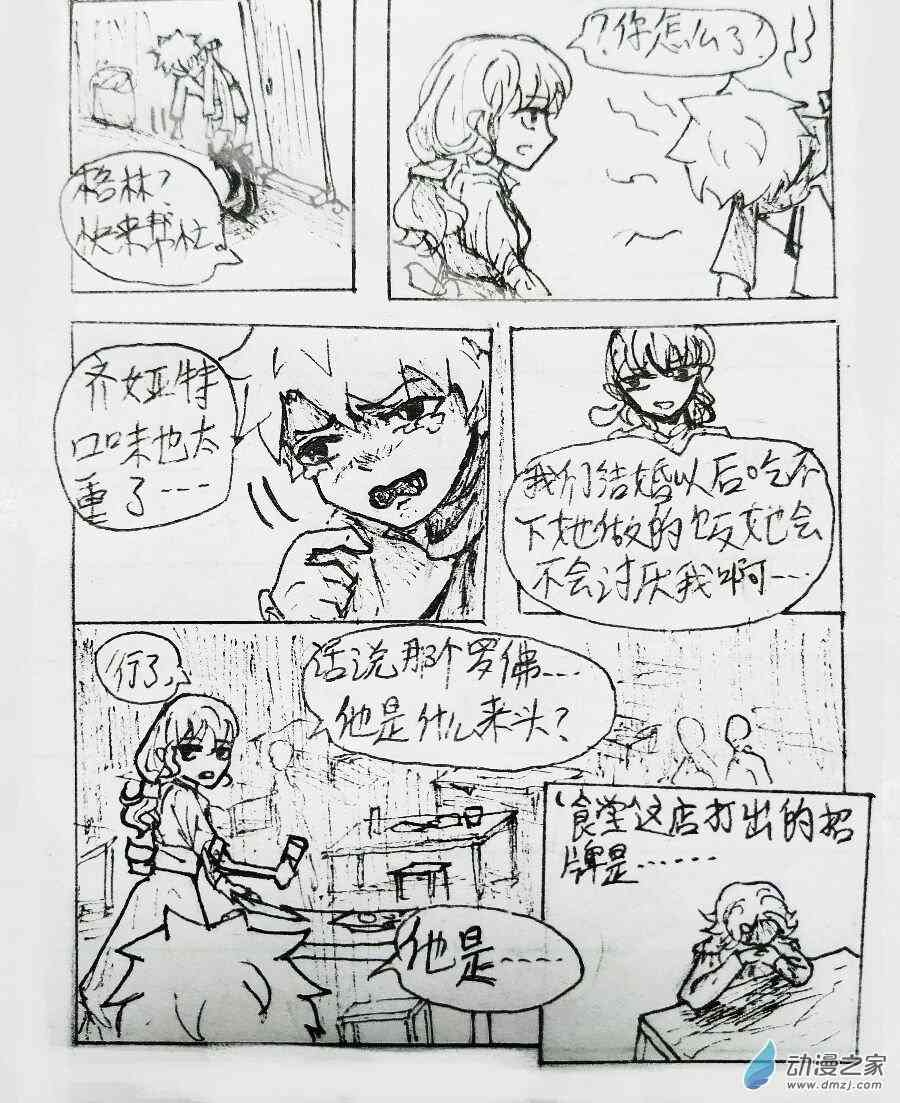 格林？
快来帮忙。
？你怎么了？
齐娅特
口味也太
重了····
我们结婚以后吃不
下她做的饭她会
不会讨厌我啊····
行了，
话说那个罗佛····
他是什么来头？
食堂这店打出的招
牌是······
他是·····
动漫之家
www.dmzj.com